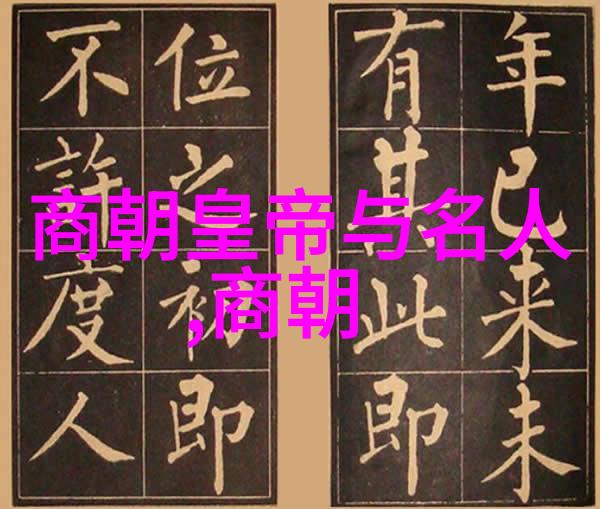 商朝皇帝与名人
,商朝
年已来未
有其此即
位之初即
不許度人